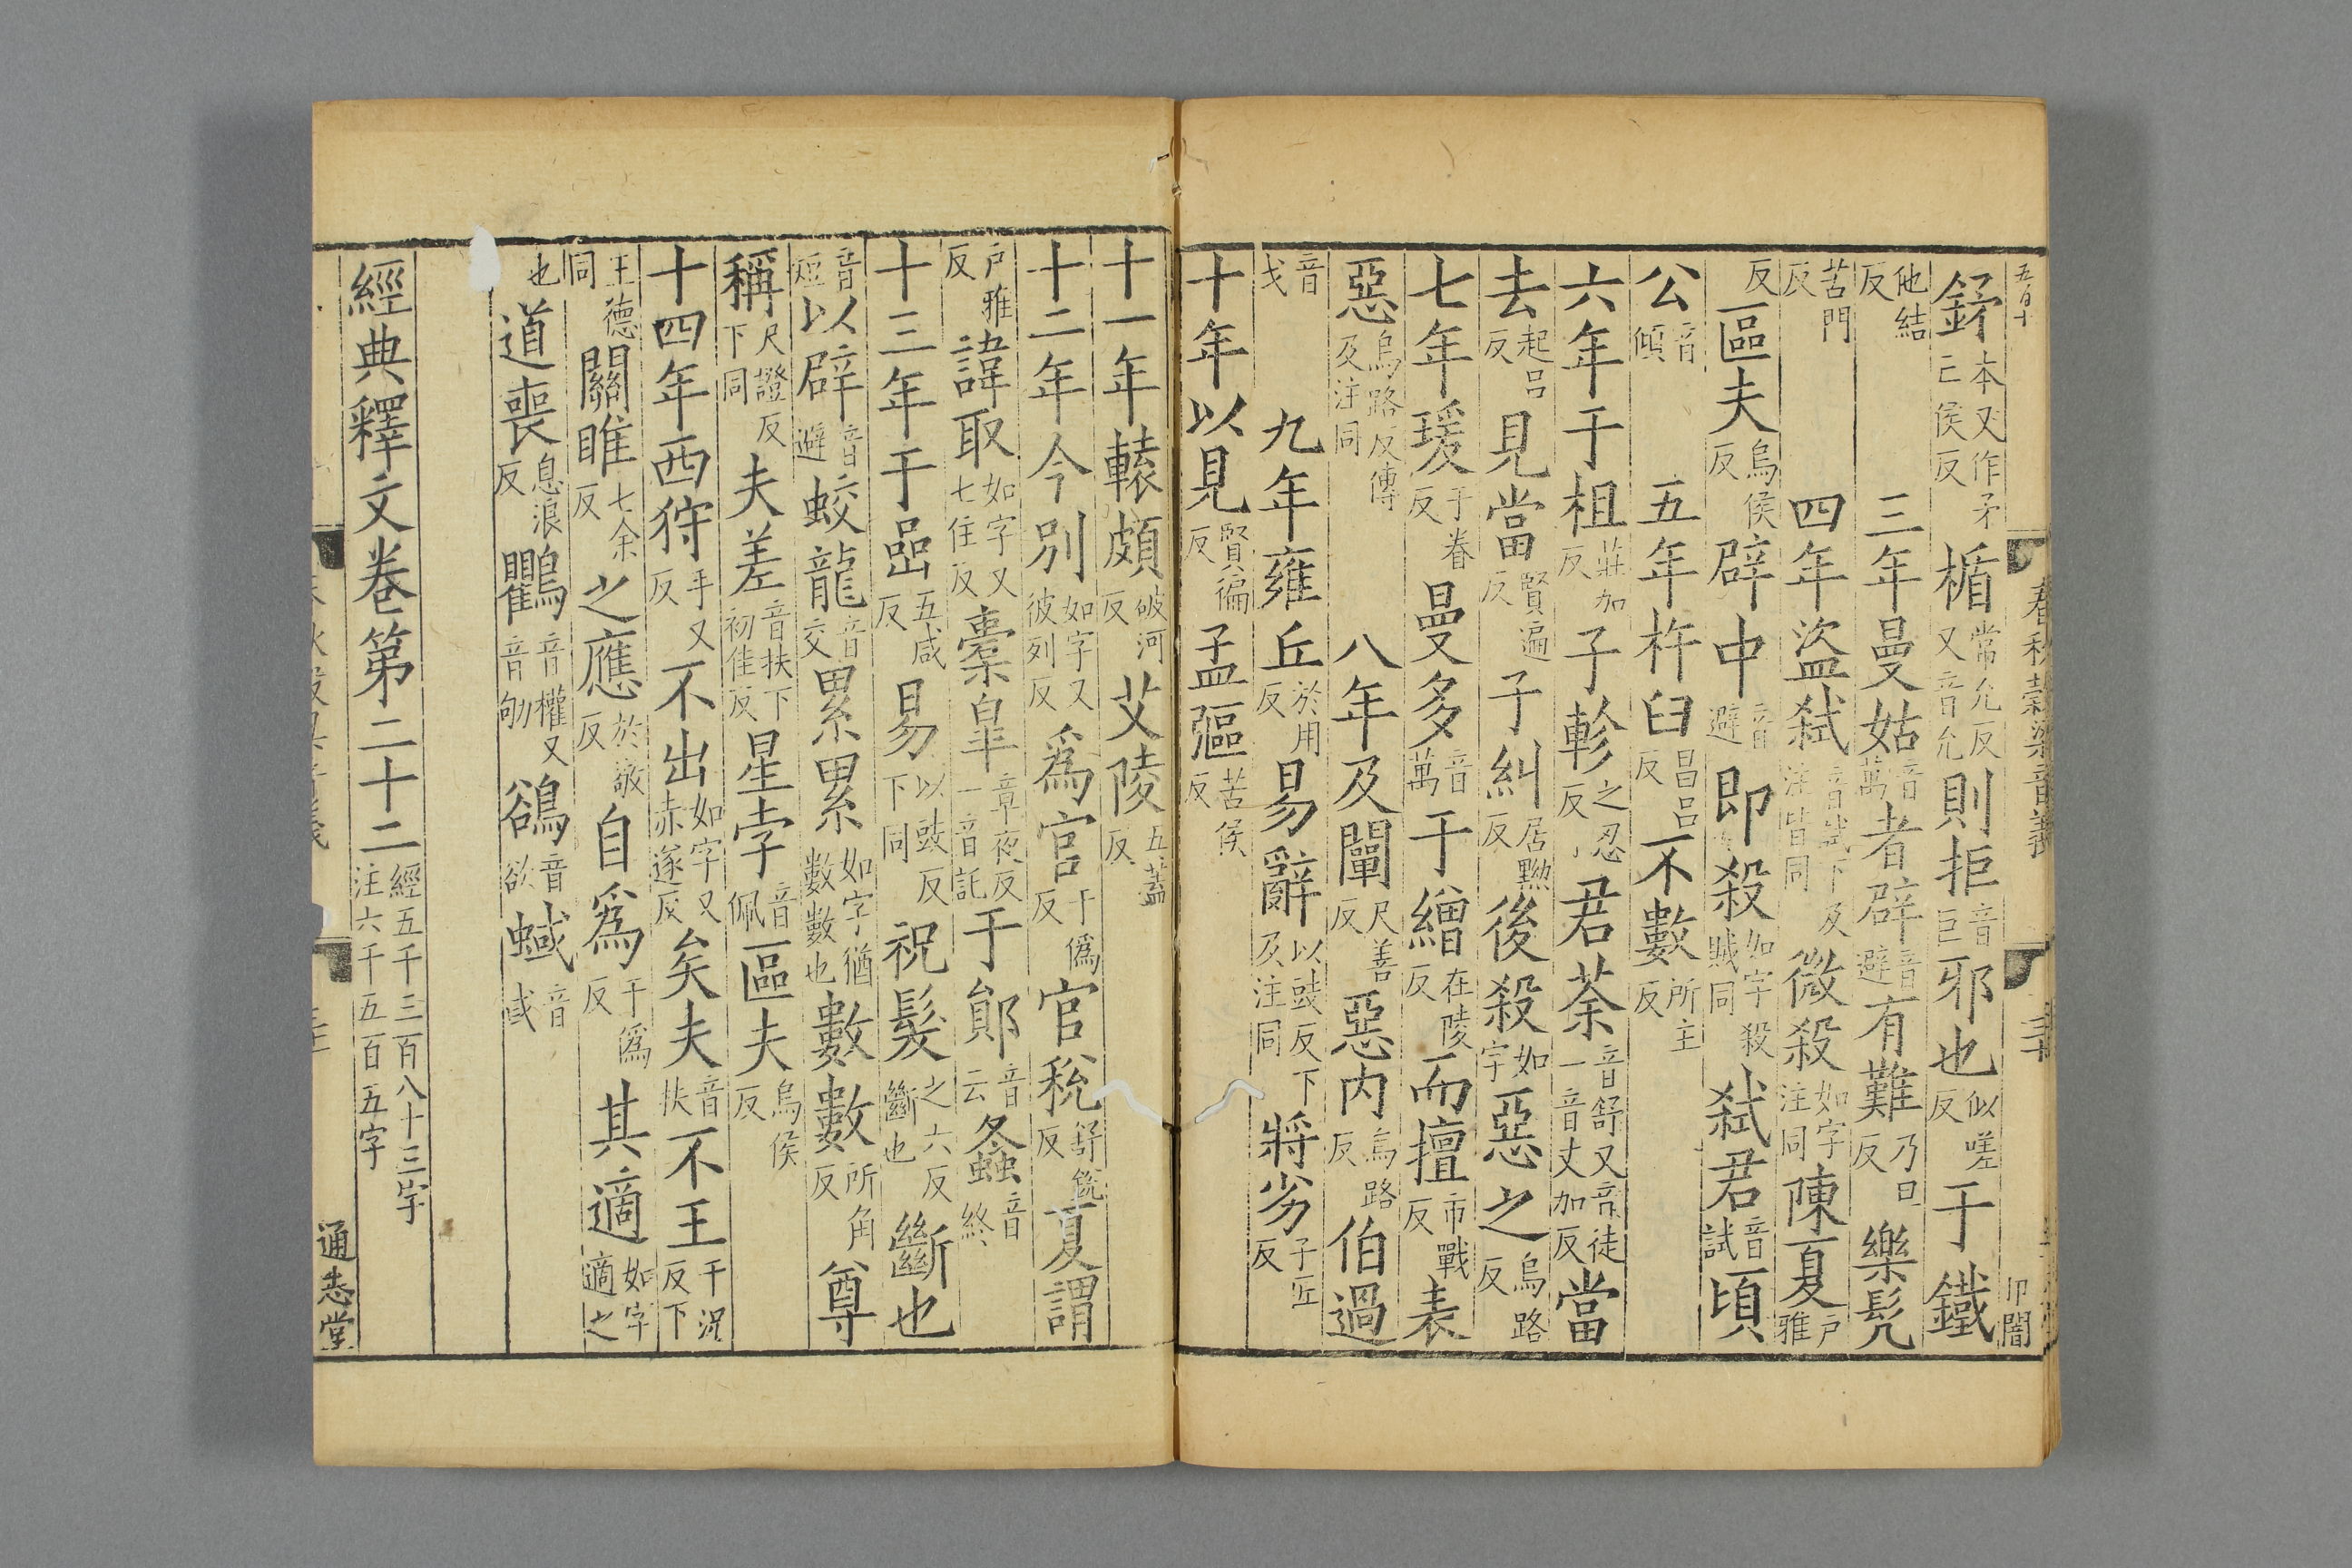 鉾本又作矛亡侯反楯常允反又音允則拒音巨邪也似嗟反于鐵
他結反三年曼姑音萬者辟音避有難乃旦反樂髡
苦門反四年盜弒音試下及注皆同微殺如字注同陳夏戶雅
反區夫烏侯反辟中音避即殺如字殺賊同弒君音試頃
公音傾五年杵臼昌呂反不數所主反
六年于柤莊加反子軫之忍反君荼音舒又音徒一音丈加反當
去起呂反見當賢遍反子糾居黝反後殺如字惡之烏路反
七年瑗于眷反曼多音萬于繒在陵反而擅市戰反表
惡烏路反傳及注同八年及闡尺善反惡內烏路反伯過
音戈九年雍丘於用反易辭以豉反下及注同將劣子匠反
十年以見賢徧反孟彄苦侯反
十一年轅頗破河反艾陵五蓋反
十二年今別如字又彼列反為官于偽反官稅舒銳反夏謂
戶雅反諱取如字又七住反橐皐章夜反一音託于鄖音云螽音終
十三年于嵒五咸反易以豉反下同祝髮之六反斷也斷也
音短以辟音避蛟龍音交累累如字猶數數也數數所角反尊
稱尺證反下同夫差音扶下初佳反星孛音佩區夫烏侯反
十四年西狩手又反不出如字又赤遂反矣夫音扶不王于況反下
王德同關雎七余反之應於敬反自為于偽反其適如字適之
也道喪息浪反鸜音權又音劬鵒音欲蜮音或
經典釋文卷第二十二經五千三百八十三字注六千五百五字
通志堂
春秋穀梁音義